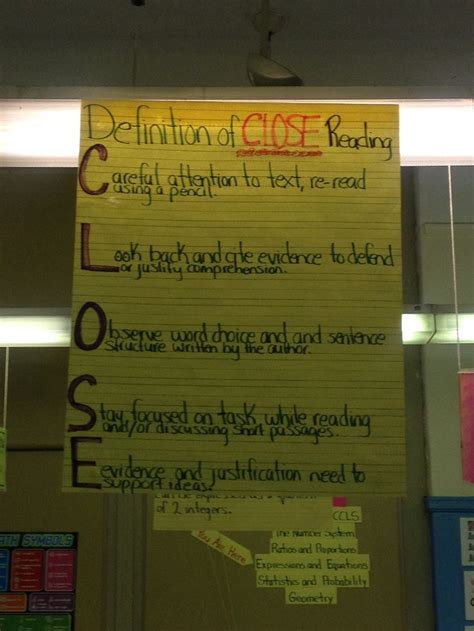 Definition of CLOSE Reading
Careful attention to text, re-read
using a pencil.
Look back and cite evidence to defend
or justify comprehension.
Observe word choice and and sentence
structure written by the author.
Stay focused on task while reading
and/or discussing short passages.
Evidence and justification need to
support ideas.
of 2 integers.
CCLS
You Are Here
The Number System
Ratios and Proportions
Expressions and Equations
Statistics and Probability
Geometry
MATH SYMBOLS